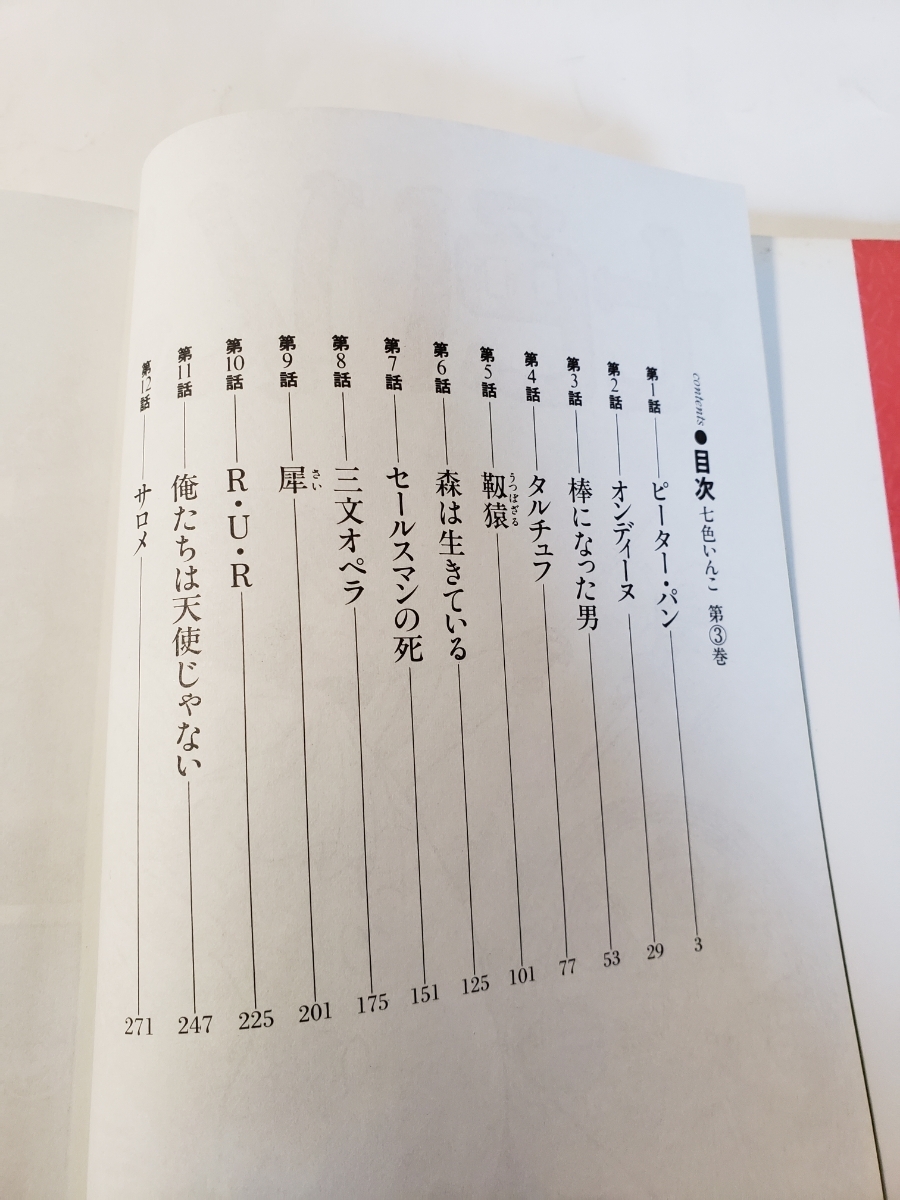 contents●目次 七色いんこ 第③巻
第1話 ピーター・パン 3
第2話 オンディーヌ 29
第3話 棒になった男 53
第4話 タルチュフ 77
第5話 靱猿 うつぼざる 101
第6話 森は生きている 125
第7話 セールスマンの死 151
第8話 三文オペラ 175
第9話 犀 さい 201
第10話 R・U・R 225
第11話 俺たちは天使じゃない 247
第12話 サロメ 271